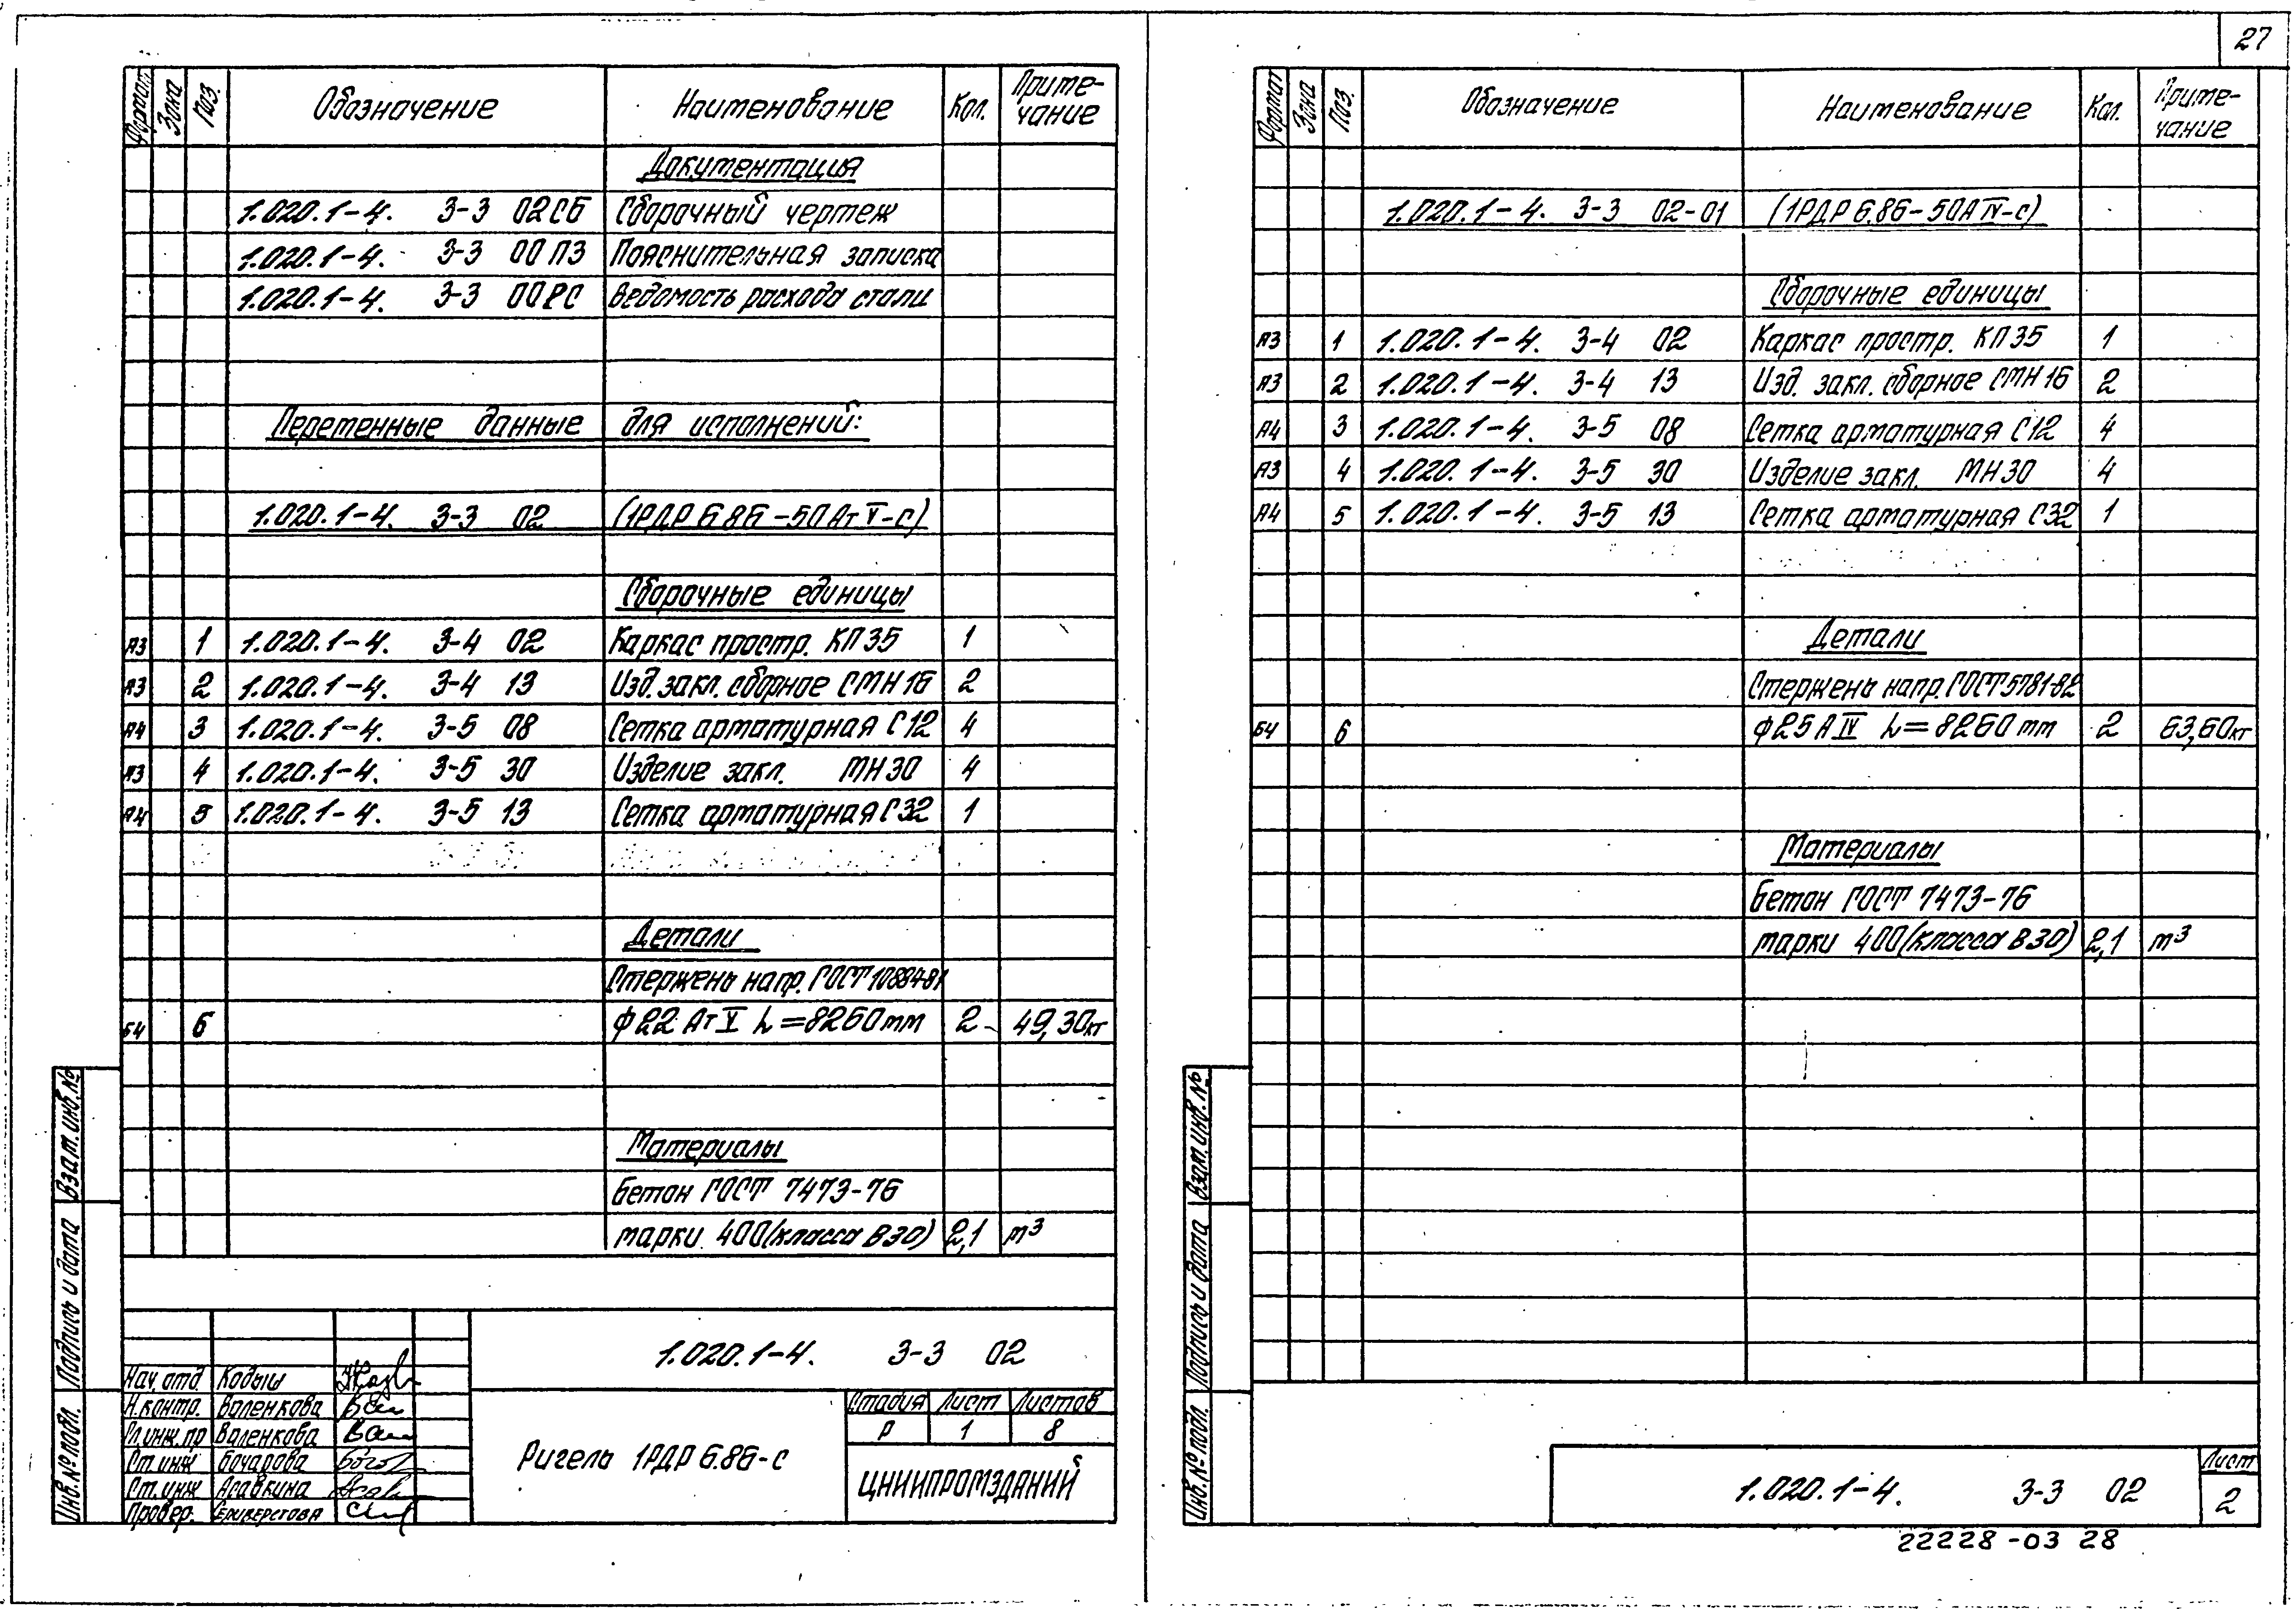 27
Формат Зона Поз. Обозначение Наименование Кол. Приме-
чание
Документация
1.020.1-4. 3-3 02СБ Сборочный чертеж
1.020.1-4. 3-3 00ПЗ Пояснительная записка
1.020.1-4. 3-3 00РС Ведомость расхода стали
Переменные данные для исполнений:
1.020.1-4. 3-3 02 (1РДР 6.86-50АтV-С)
Сборочные единицы
А3 1 1.020.1-4. 3-4 02 Каркас простр. КП35 1
А3 2 1.020.1-4. 3-4 13 Изд. закл. сборное СМН16 2
А4 3 1.020.1-4. 3-5 08 Сетка арматурная С12 4
А3 4 1.020.1-4. 3-5 30 Изделие закл. МН30 4
А4 5 1.020.1-4. 3-5 13 Сетка арматурная С32 1
Детали
Стержень напр. ГОСТ10884-81
Б4 6 ф22 АтV L=8260мм 2 49,30кг
Материалы
Бетон ГОСТ 7473-76
марки 400(класса В30) 2,1 м³
Взам.инв.№
Подпись и дата
Инв.№ подл.
1.020.1-4. 3-3 02
Нач.отд Кодыш
Н.контр. Валенкова
Гл.инж.пр Валенкова
Ст.инж Бочарова
Ст.инж Асавкина
Провер.
Ригель 1РДР 6.86-С
Стадия Лист Листов
Р 1 8
ЦНИИПРОМЗДАНИЙ
Формат Зона Поз. Обозначение Наименование Кол. Приме-
чание
1.020.1-4. 3-3 02-01 (1РДР 6.86-50АIV-С)
Сборочные единицы
А3 1 1.020.1-4. 3-4 02 Каркас простр. КП35 1
А3 2 1.020.1-4. 3-4 13 Изд. закл. сборное СМН16 2
А4 3 1.020.1-4. 3-5 08 Сетка арматурная С12 4
А3 4 1.020.1-4. 3-5 30 Изделие закл. МН30 4
А4 5 1.020.1-4. 3-5 13 Сетка арматурная С32 1
Детали
Стержень напр. ГОСТ5781-82
Б4 6 ф25 АIV L=8260мм 2 63,60кг
Материалы
Бетон ГОСТ 7473-76
марки 400(класса В30) 2,1 м³
Взам.инв.№
Подпись и дата
Инв.№ подл.
1.020.1-4. 3-3 02
Лист
2
22228-03 28